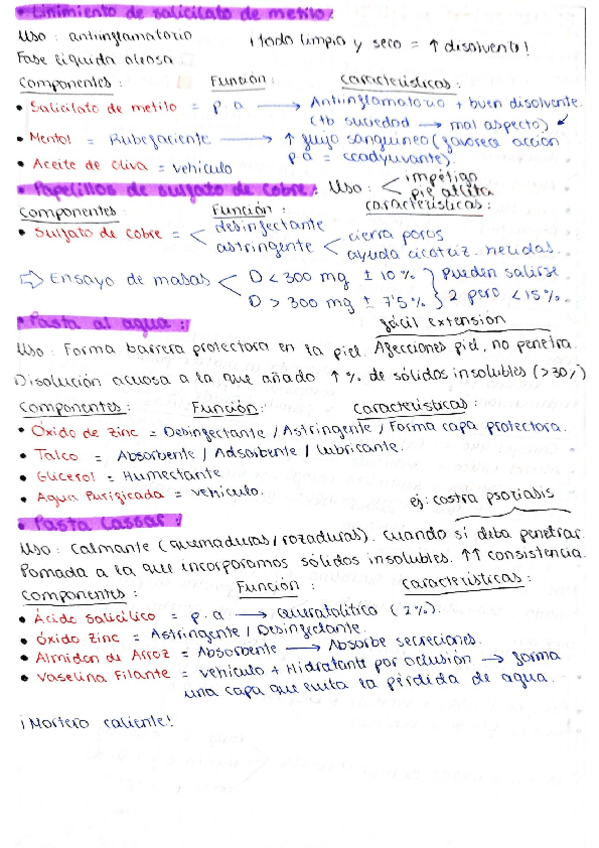 • Linimiento de salicilato de metilo:
Uso: antiinflamatorio ¡Todo limpio y seco = ↑ disolvente!
Fase líquida oleosa
Componentes: Función: características:
• Salicilato de metilo = p.a → Antiinflamatorio + buen disolvente.
(tb suciedad → mal aspecto) ↙
• Mentol = Rubefaciente → ↑ flujo sanguíneo (favorece acción
p.a = coadyuvante).
• Aceite de oliva = vehículo
• Papelillos de sulfato de cobre: Uso: < impétigo
pie atleta
Componentes Función: características:
• Sulfato de cobre = < desinfectante
astringente < cierra poros
ayuda cicatriz. heridas.
⇨ Ensayo de masas < D < 300 mg ± 10% } Pueden salirse
D > 300 mg ± 7'5% } 2 pero < 15%.
• Pasta al agua: fácil extensión
Uso: Forma barrera protectora en la piel. Afecciones piel, no penetra.
Disolución acuosa a la que añado ↑ % de sólidos insolubles (>30%)
Componentes: Función: Características:
• Óxido de zinc = Desinfectante / Astringente / Forma capa protectora.
• Talco = Absorbente / Adsorbente / Lubricante.
• Glicerol = Humectante
• Agua Purificada = vehículo.
ej: costra psoriasis
• Pasta Lassar:
Uso: Calmante (quemaduras / rozaduras). Cuando si deba penetrar.
Pomada a la que incorporamos sólidos insolubles. ↑↑ consistencia.
Componentes: Función: características:
• Ácido salicílico = p.a → Queratolítico (2%).
• óxido zinc = Astringente / Desinfectante.
• Almidón de Arroz = Absorbente → Absorbe secreciones.
• Vaselina Filante = vehículo + Hidratante por oclusión → forma
una capa que evita la pérdida de agua.
¡Mortero caliente!